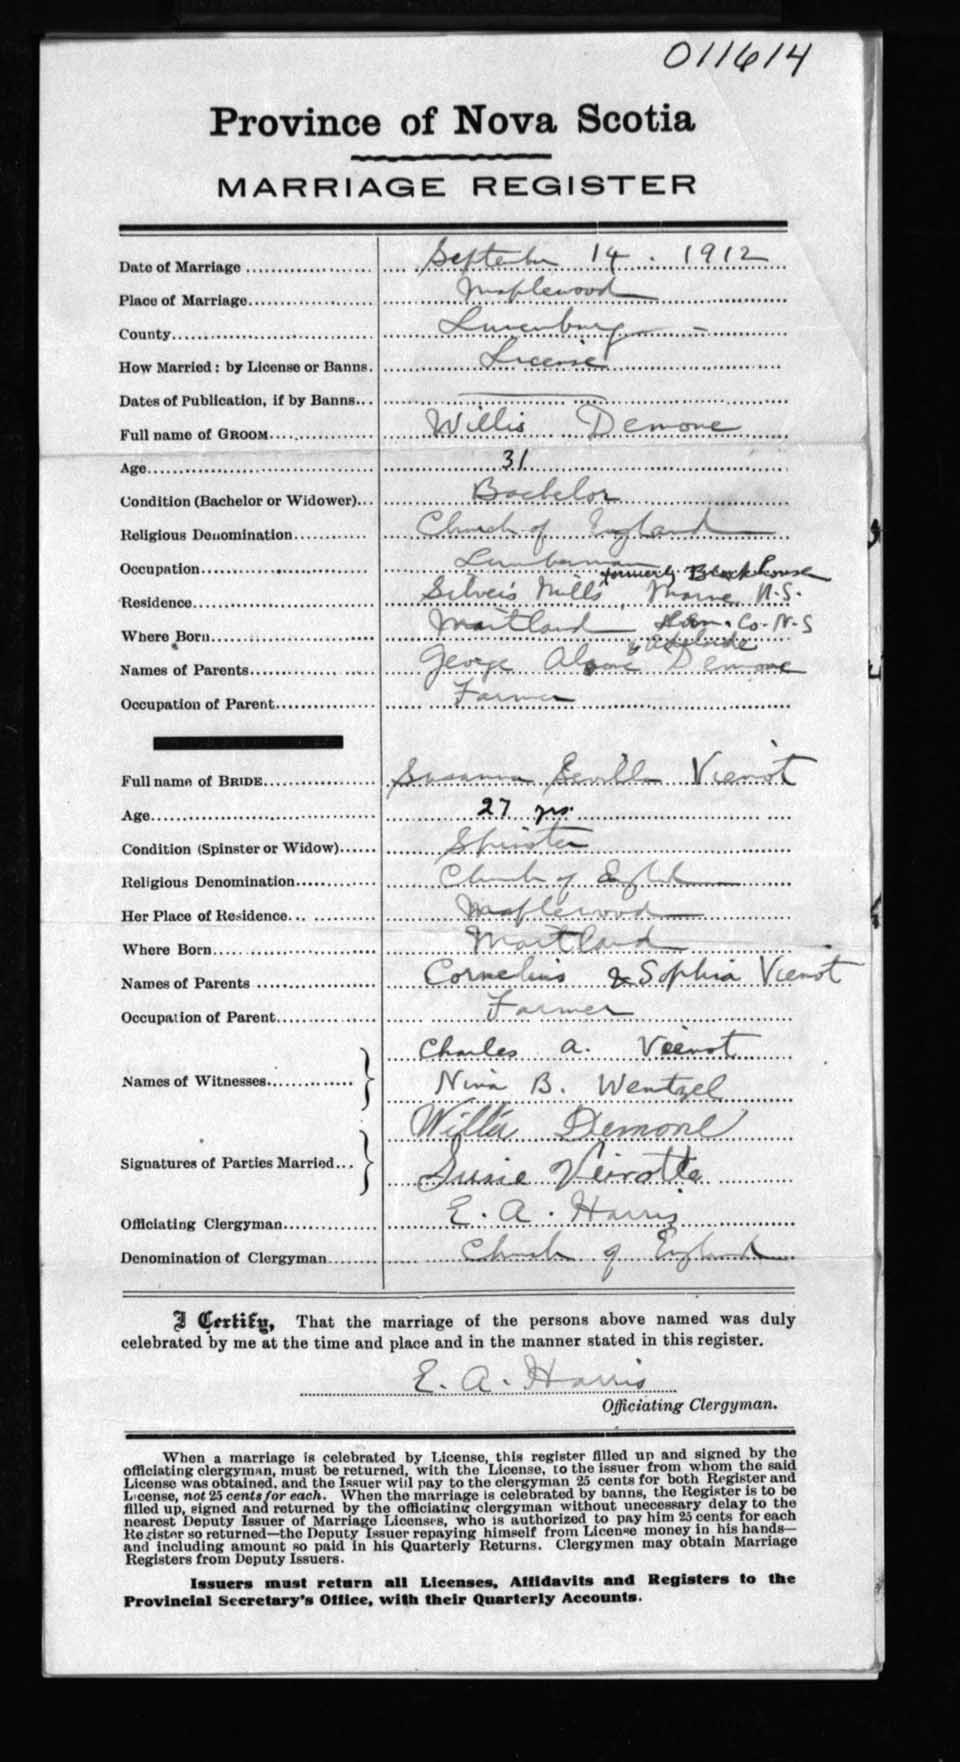 011614
Province of Nova Scotia
MARRIAGE REGISTER
Date of Marriage September 14. 1912
Place of Marriage Maplewood
County Lunenburg
How Married: by License or Banns. License
Dates of Publication, if by Banns
Full name of GROOM Willis Demone
Age 31
Condition (Bachelor or Widower) Bachelor
Religious Denomination Church of England
Occupation Lumberman
formerly Blockhouse
Residence Mills, N.S.
Where Born Maitland Lun. Co. N-S
& Adelaide
Names of Parents George Demone
Occupation of Parent Farmer
Full name of BRIDE Susanna Vienot
Age 27 yrs.
Condition (Spinster or Widow) Spinster
Religious Denomination Church of Engld
Her Place of Residence Maplewood
Where Born Maitland
Names of Parents Cornelius & Sophia Vienot
Occupation of Parent Farmer
Charles A. Vienot
Names of Witnesses
Nina B. Wentzel
Demone
Signatures of Parties Married
Susie
Officiating Clergyman E. A. Harris
Denomination of Clergyman Church of England
I Certify, That the marriage of the persons above named was duly
celebrated by me at the time and place and in the manner stated in this register.
E. A. Harris
Officiating Clergyman.
When a marriage is celebrated by License, this register filled up and signed by the
officiating clergyman, must be returned, with the License, to the issuer from whom the said
License was obtained, and the Issuer will pay to the clergyman 25 cents for both Register and
License, not 25 cents for each. When the marriage is celebrated by banns, the Register is to be
filled up, signed and returned by the officiating clergyman without unnecessary delay to the
nearest Deputy Issuer of Marriage Licenses, who is authorized to pay him 25 cents for each
Register so returned—the Deputy Issuer repaying himself from License money in his hands—
and including amount so paid in his Quarterly Returns. Clergymen may obtain Marriage
Registers from Deputy Issuers.
Issuers must return all Licenses, Affidavits and Registers to the
Provincial Secretary's Office, with their Quarterly Accounts.